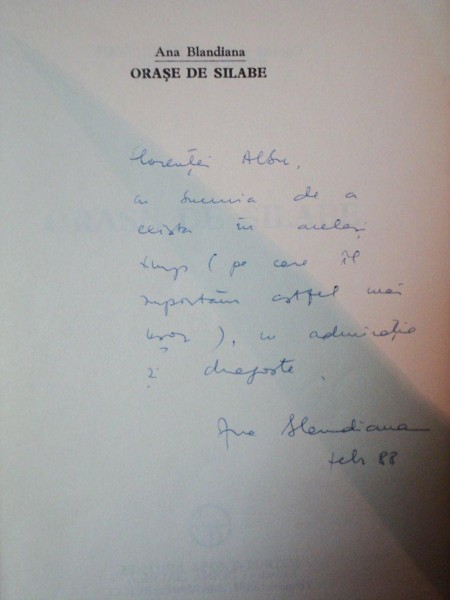 Ana Blandiana
ORAȘE DE SILABE
Florenței Albu,
cu bucuria de a
exista în același
timp (pe care îl
suportăm astfel mai
ușor), cu admirație
și dragoste,
Ana Blandiana
febr 88